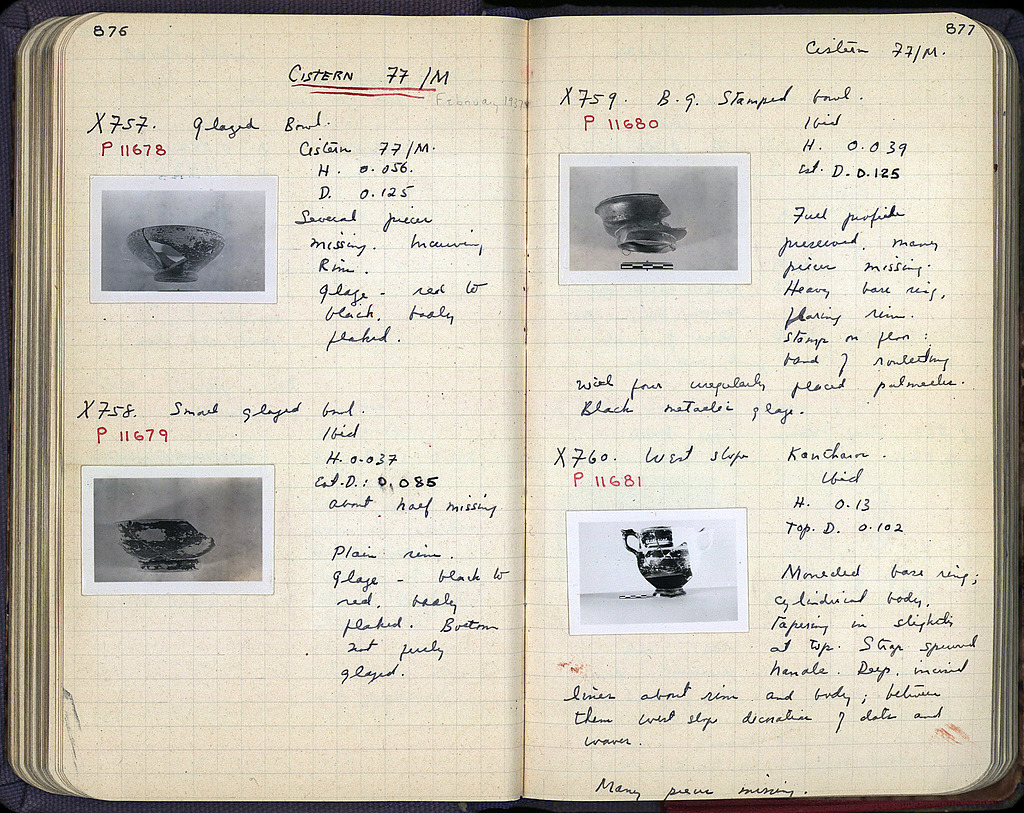 876
CISTERN 77/M
February 1937
X757. Glazed Bowl.
P 11678
Cistern 77/M.
H. 0.056.
D. 0.125
Several pieces
missing. Incurving
Rim.
Glaze - red to
black, badly
flaked.
X758. Small glazed bowl.
P 11679
Ibid
H. 0.037
Est. D.: 0.085
about half missing
Plain rim.
Glaze - black to
red, badly
flaked. Bottom
not fully
glazed.
877
Cistern 77/M.
X759. B.g. Stamped bowl.
P 11680
Ibid
H. 0.039
est. D. 0.125
Full profile
preserved, many
pieces missing.
Heavy base ring,
flaring rim.
Stamp on floor:
band of rouletting
with four irregularly placed palmettes.
Black metallic glaze.
X760. West slope Kantharos.
P 11681
Ibid
H. 0.13
Top. D. 0.102
Moulded base ring;
cylindrical body,
tapering in slightly
at top. Strap spurred
handle. Deep, incised
lines about rim and body; between
them west slope decoration of dots and
waves.
Many pieces missing.